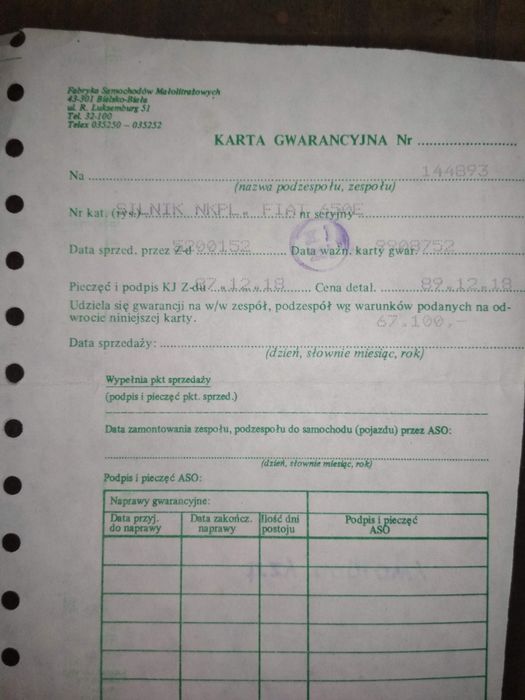 Fabryka Samochodów Małolitrażowych
43-301 Bielsko-Biała
ul. R. Luksemburg 51
Tel. 32-100
Telex 035250 – 035252
KARTA GWARANCYJNA Nr
144893
Na
(nazwa podzespołu, zespołu)
SILNIK NKPL. FIAT 650E
Nr kat. (rys.) nr seryjny
5200152 8908752
Data sprzed. przez Z-d Data ważn. karty gwar.
87.12.18 89.12.18
Pieczęć i podpis KJ Z-du Cena detal.
Udziela się gwarancji na w/w zespół, podzespół wg warunków podanych na od-
wrocie niniejszej karty.
67.100,-
Data sprzedaży:
(dzień, słownie miesiąc, rok)
Wypełnia pkt sprzedaży
(podpis i pieczęć pkt. sprzed.)
Data zamontowania zespołu, podzespołu do samochodu (pojazdu) przez ASO:
(dzień, słownie miesiąc, rok)
Podpis i pieczęć ASO:
Naprawy gwarancyjne:
Data przyj. do naprawy
Data zakończ. naprawy
Ilość dni postoju
Podpis i pieczęć ASO